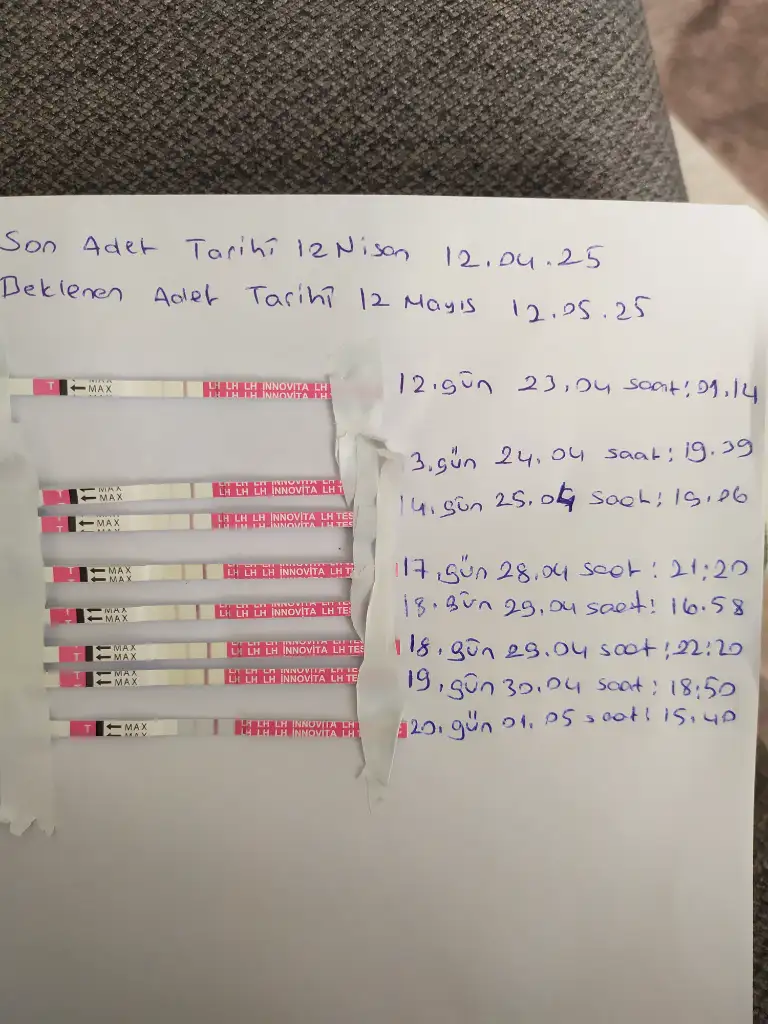 Son Adet Tarihi 12 Nisan 12.04.25
Beklenen Adet Tarihi 12 Mayıs 12.05.25
T MAX LH LH LH İNNOVİTA LH
12.gün 23.04 saat:01.14
3.gün 24.04 saat: 19.39
T MAX LH LH LH İNNOVİTA LH T
14.gün 25.04 saat: 19.06
T MAX LH LH LH İNNOVİTA LH TES
17.gün 28.04 saat: 21:20
T MAX LH LH LH İNNOVİTA LH T
18.gün 29.04 saat: 16.58
T MAX LH LH LH İNNOVİTA LH
18.gün 29.04 saat: 22:20
T MAX LH LH LH İNNOVİTA LH TES
19.gün 30.04 saat: 18:50
T MAX LH LH LH İNNOVİTA LH TE
20.gün 01.05 saat: 15.40
T MAX LH LH LH İNNOVİTA LH